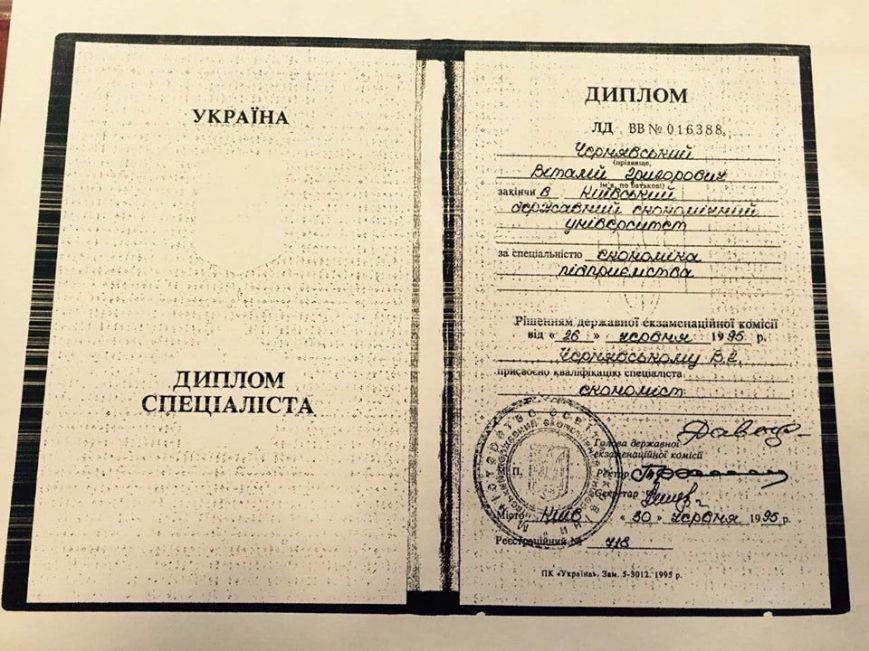 УКРАЇНА
ДИПЛОМ
СПЕЦІАЛІСТА
ДИПЛОМ
ЛД ВВ № 016388
Чорнявський
(прізвище,
Віталій Григорович
ім'я, по батькові)
закінчив Київський
державний економічний
університет
за спеціальністю економіка
підприємства
Рішенням державної екзаменаційної комісії
від « 26 » червня 1995 р.
Чорнявському В.Г.
присвоєно кваліфікацію спеціаліста
економіст
Голова державної
екзаменаційної комісії
Ректор
Секретар
Місто Київ « 30 » червня 1995 р.
Реєстраційний № 718
ПК «Україна». Зам. 5-3012. 1995 р.